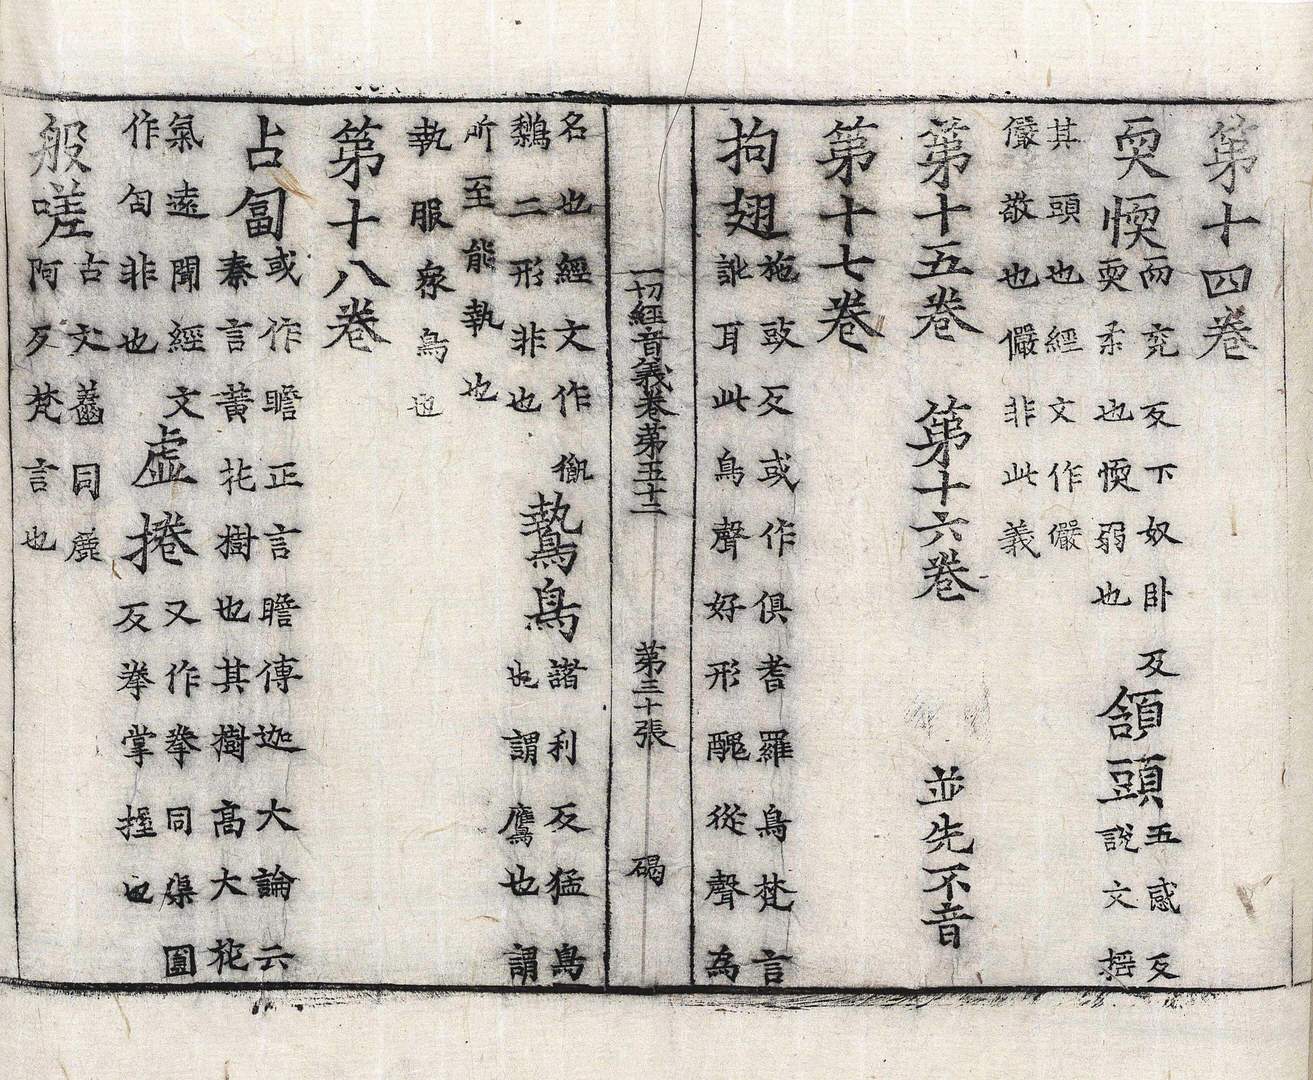 第十四卷
耎愞而兖反下奴卧反
耎柔也愞弱也
頷頭五感反
說文搖
其頭也經文作儼
儼敬也儼非此義
第十五卷 第十六卷 並先不音
第十七卷
拘翅施豉反或作俱耆羅鳥梵言
訛耳此鳥聲好形醜從聲為
一切經音義卷第五十二 第三十張 碣
名也經文作
鷜二形非也
鷙鳥諸利反猛鳥
也謂鷹也謂
所至能執也
執服衆鳥也
第十八卷
占匐或作瞻正言瞻傳迦大論云
秦言黃花樹也其樹高大花
氣遠聞經文
作匐非也
虛捲又作拳同渠圓
反拳掌握也
般嗟古文䰈同麁
阿反梵言也